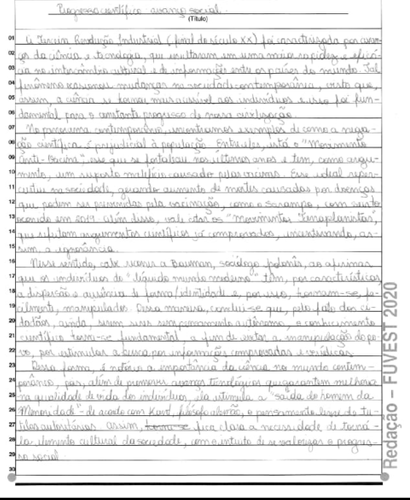 Progresso científico, avanço social
(Título)
01 A Terceira Revolução Industrial (final do século XX) foi caracterizada por avan-
02 ços da ciência e tecnologia, que resultaram em uma maior rapidez e eficá-
03 cia no intercâmbio cultural e de informações entre os países do mundo. Tal
04 fenômeno ocasionou mudanças na sociedade contemporânea, visto que,
05 assim, a ciência se tornou mais acessível aos indivíduos e isso foi fun-
06 damental para o constante progresso de nossa civilização.
07 No panorama contemporâneo, encontramos exemplos de como a nega-
08 ção científica é prejudicial à população. Entre eles, está o "Movimento
09 Anti-Vacina" que se fortaleceu nos últimos anos e tem, como argu-
10 mento, um suposto malefício causado pelas vacinas. Esse ideal reper-
11 cutiu na sociedade, gerando aumento de mortes causadas por doenças
12 que podem ser prevenidas pela vacinação, como o Sarampo, com surto
13 ocorrido em 2019. Além disso, vale citar os "Movimentos Terraplanistas",
14 que refutam argumentos científicos já comprovados, incentivando, as-
15 sim, a ignorância.
16 Nesse sentido, cabe Bauman, sociólogo polonês, ao afirmar
17 que os indivíduos do "líquido mundo moderno" têm, por características
18 a dispersão e ausência de forma/identidade e, por isso, tornam-se, fa-
19 cilmente, manipulados. Dessa maneira, conclui-se que, pelo fato dos ci-
20 dadãos, ainda, serem seres sem pensamento autônomo, o conhecimento
21 científico torna-se fundamental, a fim de evitar a manipulação do po-
22 vo, por estimular a busca por informações comprovadas e verídicas.
23 Dessa forma, é notória a importância da ciência no mundo contem-
24 porâneo, pois, além de promover avanços tecnológicos que garantem melhora
25 na qualidade de vida dos indivíduos, ela estimula a "saída do homem da
26 Menoridade" - de acordo com Kant, filósofo alemão, o pensamento livre de tu-
27 telas autoritárias. Assim, fica clara a necessidade de torná-
28 la elemento cultural da sociedade, com o intuito de se valorizar o progres-
29 so social.
30
Redação - FUVEST 2020